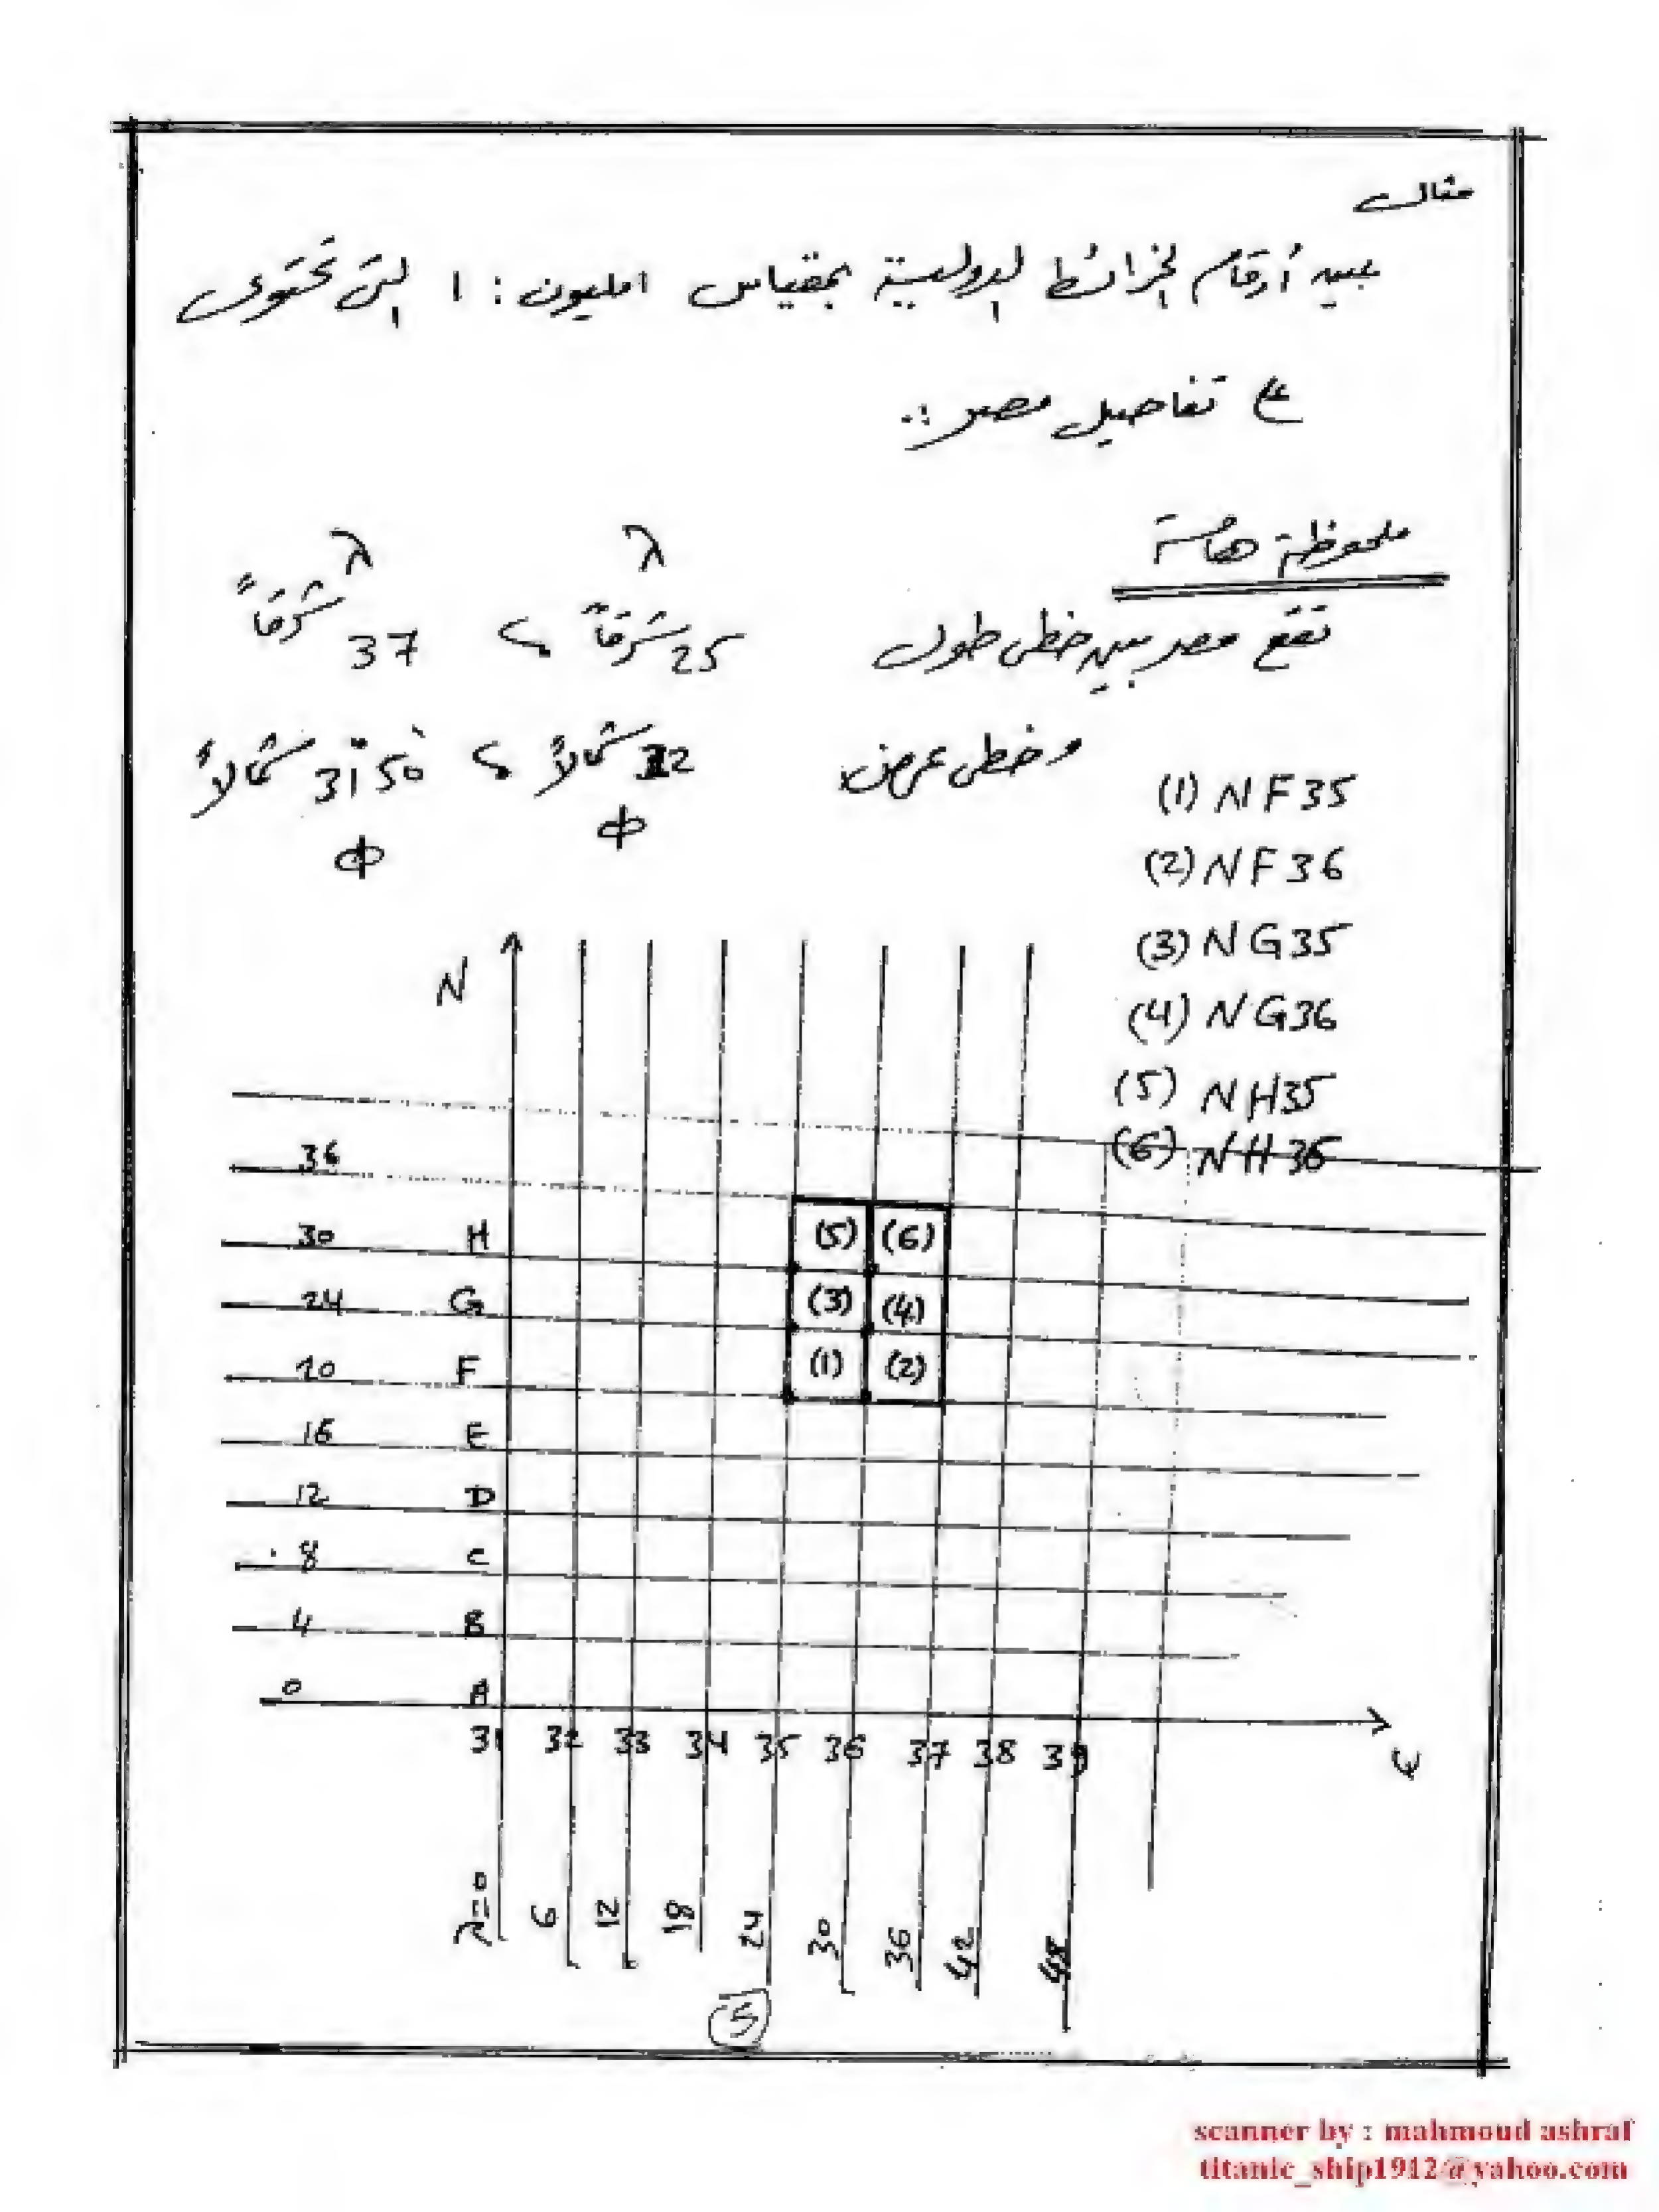 مثال
بين أرقام الخرائط الدولية بمقياس ١ مليون : ١ التى تحتوى
على تفاصيل مصر :.
ملحوظة هامة
λ λ
تقع مصر بين خطى طول 25 شرقاً ، 37 شرقاً
وخطى عرض 22 شمالاً ، 31° 50` شمالاً
Φ Φ
(1) NF35
(2) NF36
(3) NG35
(4) NG36
(5) NH35
(6) NH36
N
36
30 H (5) (6)
24 G (3) (4)
20 F (1) (2)
16 E
12 D
8 C
4 B
0 A
31 32 33 34 35 36 37 38 39
E
λ=0 6 12 18 24 30 36 42 48
5
scanner by : mahmoud ashraf
titanic_ship1912@yahoo.com